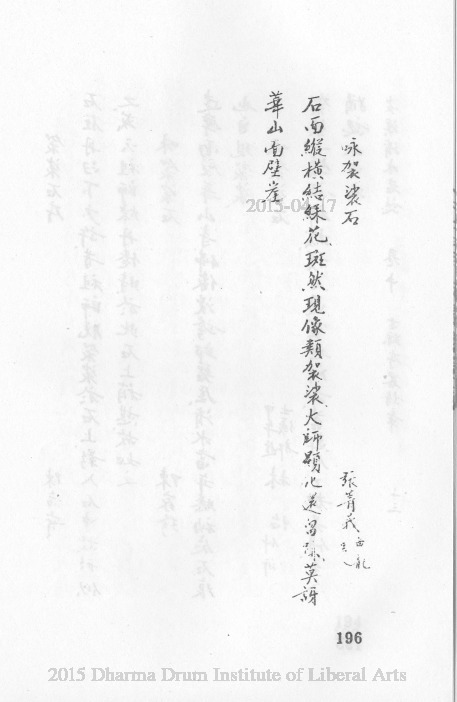 咏袈裟石
張菁莪
石面縱橫結綵花斑然現像類袈裟大師顯化遺留跡莫訝
華山面壁崖
2015-04-17
196
2015 Dharma Drum Institute of Liberal Arts